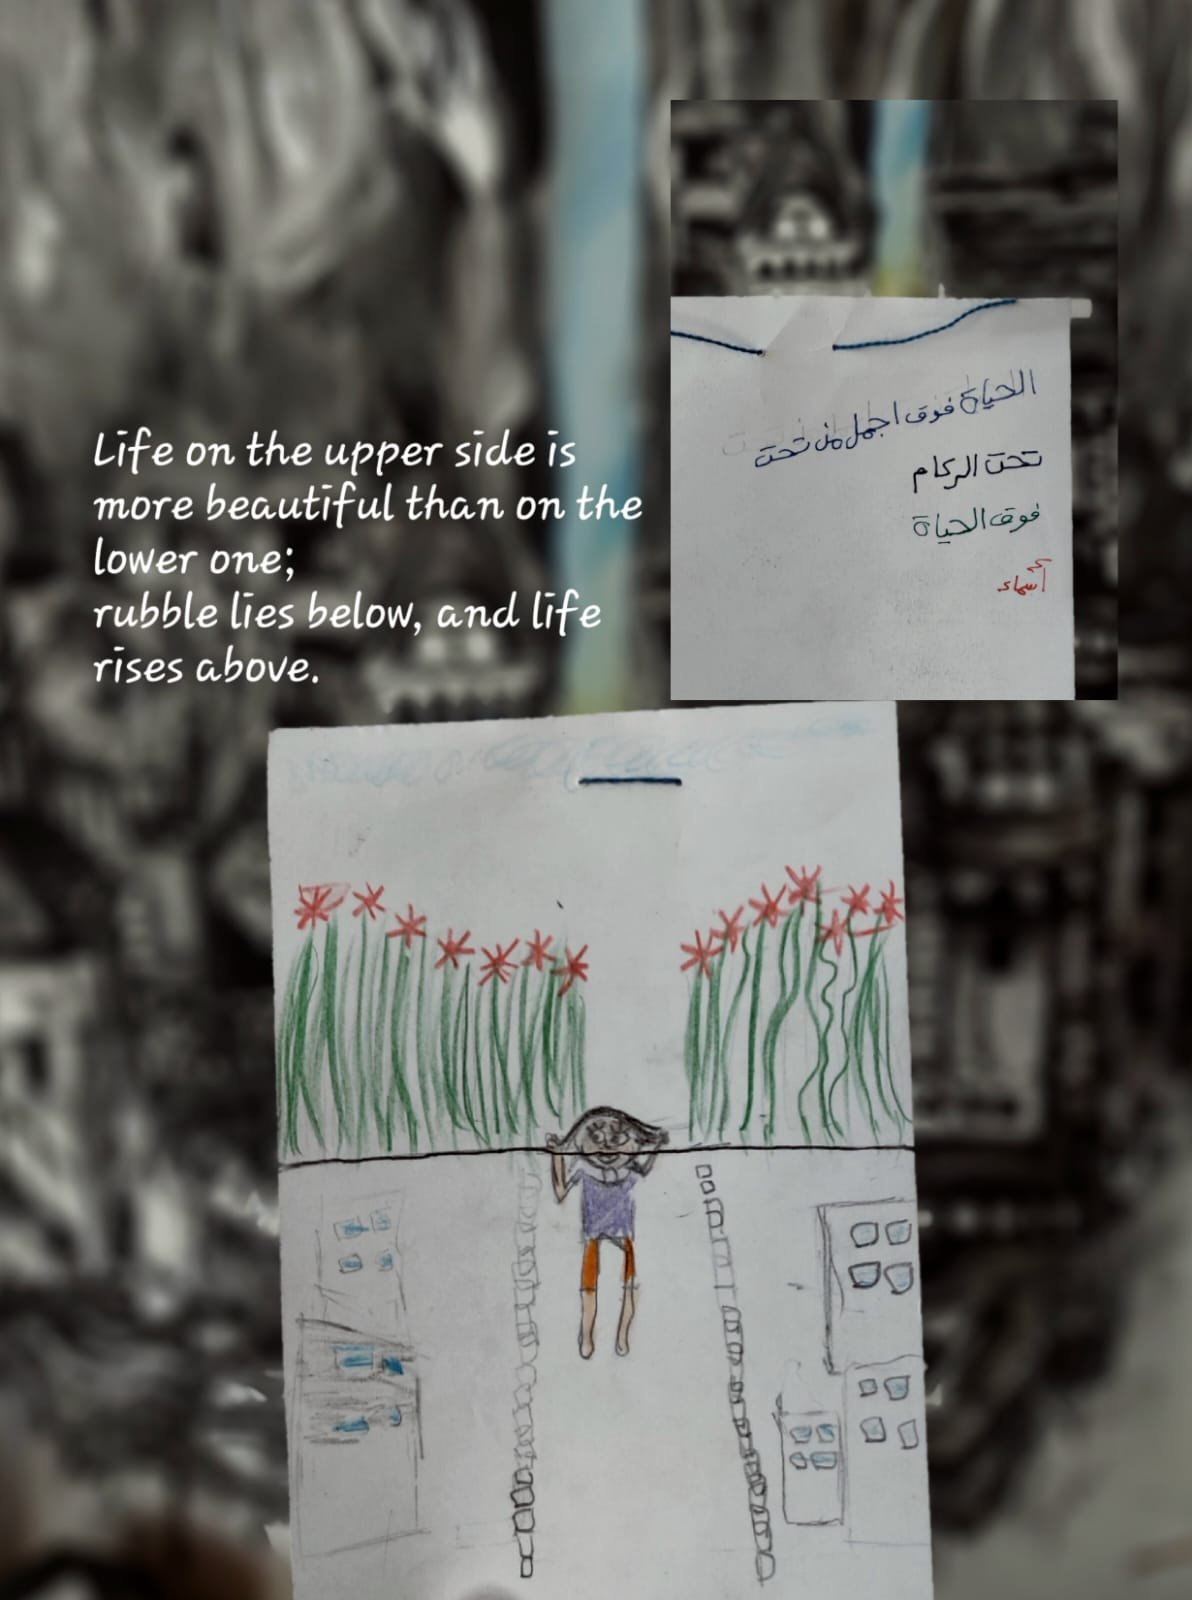 Life on the upper side is
more beautiful than on the
lower one;
rubble lies below, and life
rises above.
الحياة فوق اجمل من تحت
تحت الركام
فوق الحياة
أسماء